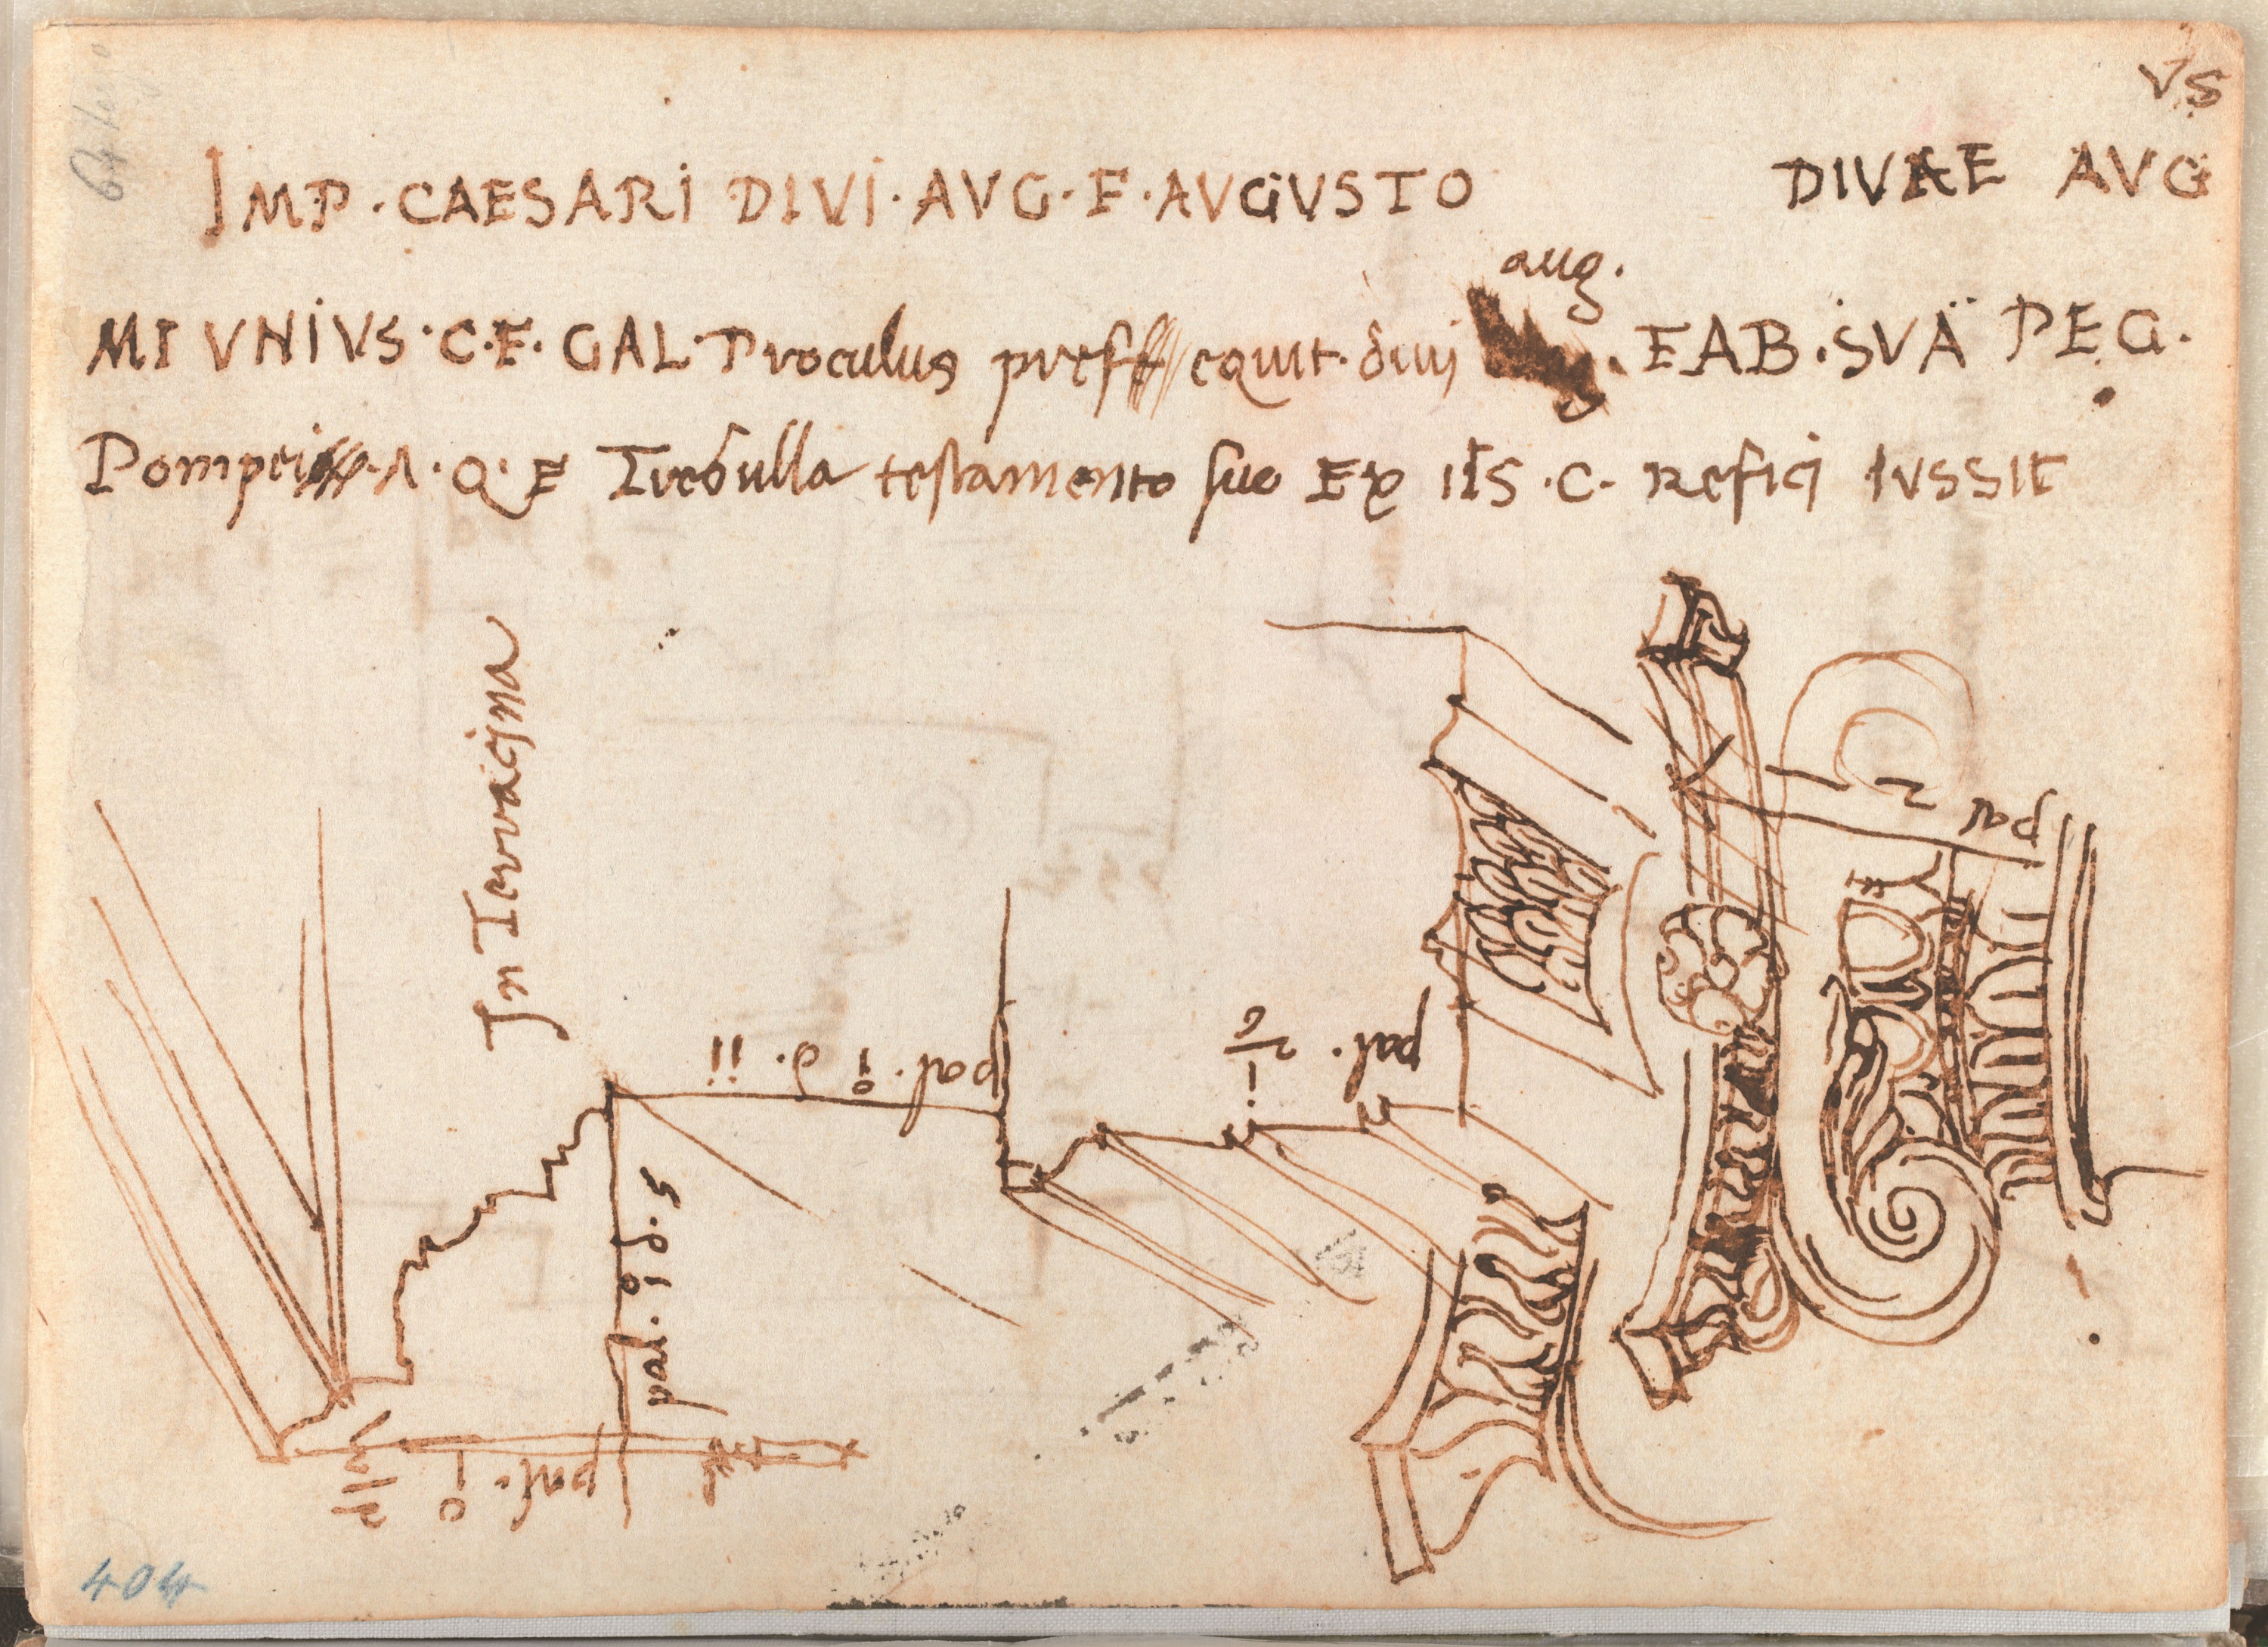 VS
IMP · CAESARI DIVI · AVG · F · AVGVSTO DIVAE AVG
MI VNIVS · C · F · GAL · Proculus preff equit · divi aug. FAB · SVA PEG ·
Pompei · A · Q · F Trebulla testamento suo Ex IIS · C · Refici IVSSIT
In Terracina
pal. 2
pal. 0 d. 11
pal. 1/2
pal. 0 d. 5
pal. 0
404